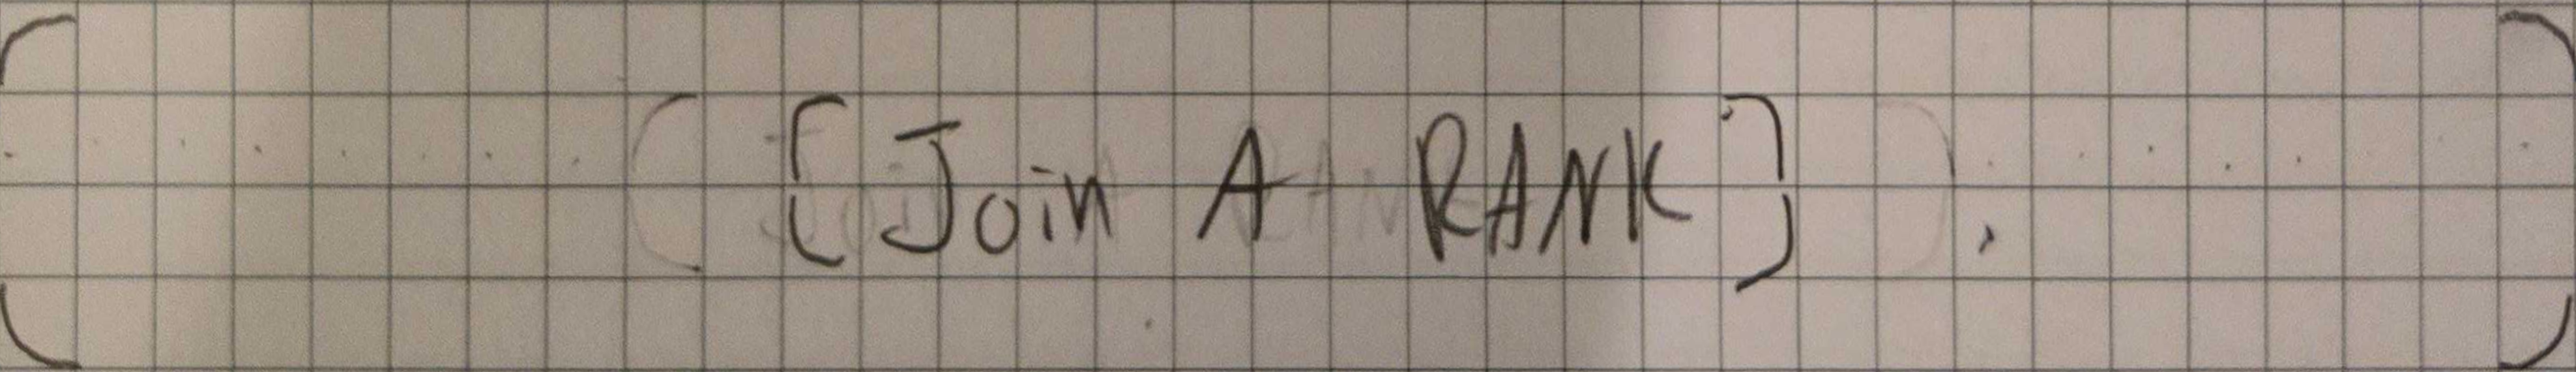 [Join A RANK]